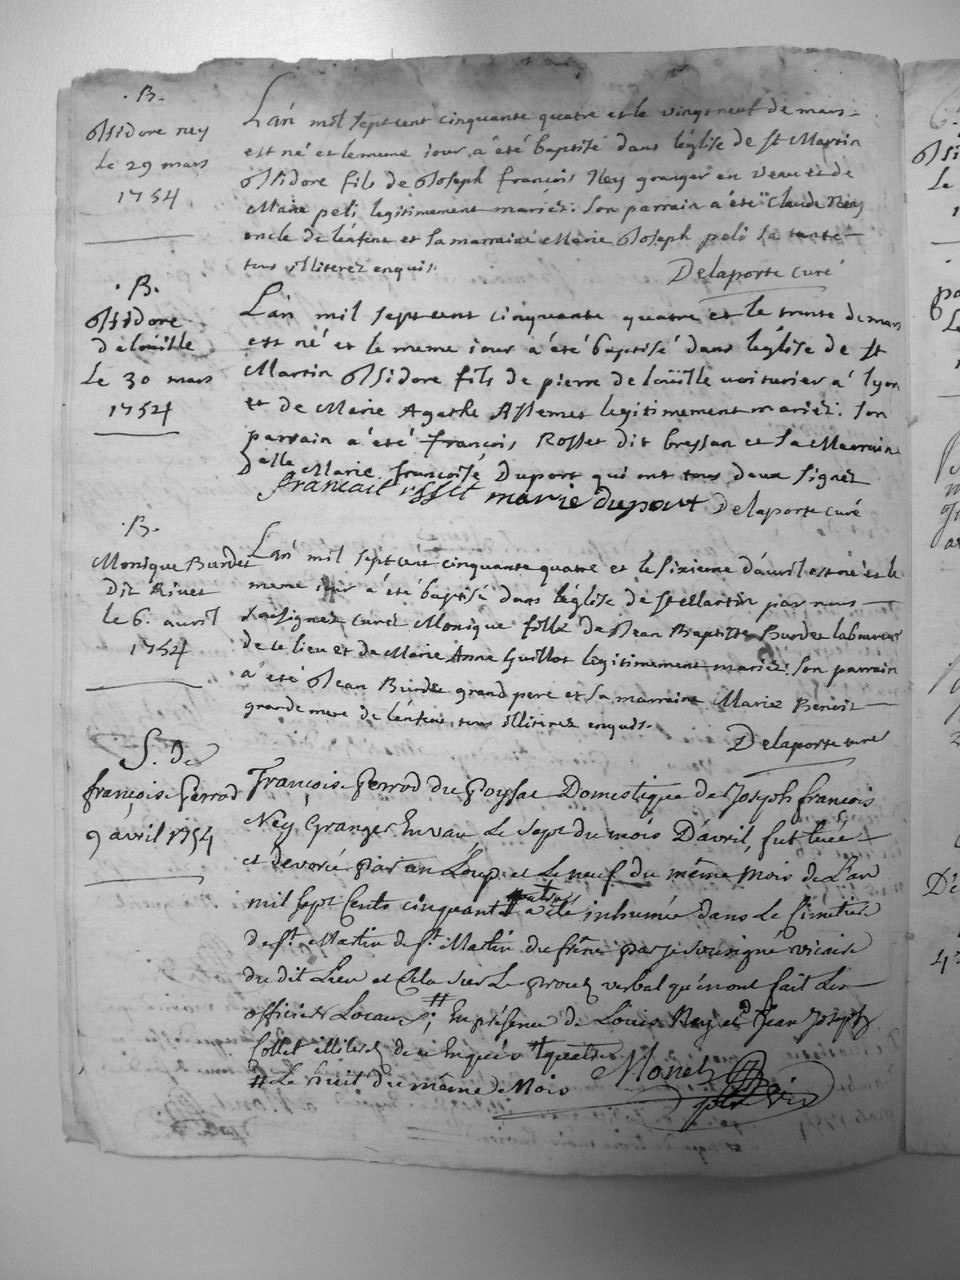 . B.
Ossidore ney
Le 29 mars
1754
L'an mil sept cent cinquante quatre et le vingt neuf de mars
est né et le meme iour a été baptisé dans l'église de St Martin
Ossidore fils de Joseph françois Ney granger en veau et de
Marie peli legitimement mariéz. Son parrain a été Claude Ney
oncle de l'enfent et sa marraine Marie Joseph peli sa tante
tous illiterez enquis.
Delaporte curé
. B.
Ossidore
delouille
Le 30 mars
1754
L'an mil sept cent cinquante quatre et le trente de mars
est né et le meme iour a été baptisé dans l'église de St
Martin Ossidore fils de pierre de loüille voiturier a lyon
et de Marie Agathe Assemet legitimement mariéz. Son
parrain a été françois Rosset dit bressan et sa Marrain
e elle Marie françoise Duport qui ont tous deux signéz
marie duport Delaporte curé
. B.
Monique Burdet
Dit Rivet
le 6. avril
1754
L'an mil sept cent cinquante quatre et le sixieme d'avril est né et le
meme iour a été baptisé dans l'église de St Martin par nous
soussignez curéz Monique fille de Jean Baptiste Burdet laboureur
de ce lieu et de Marie Anne Guillot legitimement mariéz. Son parrain
a été Jean Burdet grand pere et sa marraine Mariez Benoit
grande mere de l'enfent, tous illitirez enquis.
Delaporte curé
S. De
françois Perrod
9 avril 1754
François Perrod du Poysat Domestique de Joseph françois
Ney Granger En vau Le Sept du mois D'avril, fut tuée
et devorée par un Loup et Le neuf du même Mois de L'an
mil sept Cents cinquante + a été inhumée dans Le Cimetier
de St Martin du frêne par je soussigné vicaire
du dit Lieu et Cela sur Le proces verbal qu'en ont fait Les
officiers Locaux #; En présence de Louis Ney et Jean Joseph
Collet illiterez de ce Enquis + quatre
# Le huit du même Mois
Monet